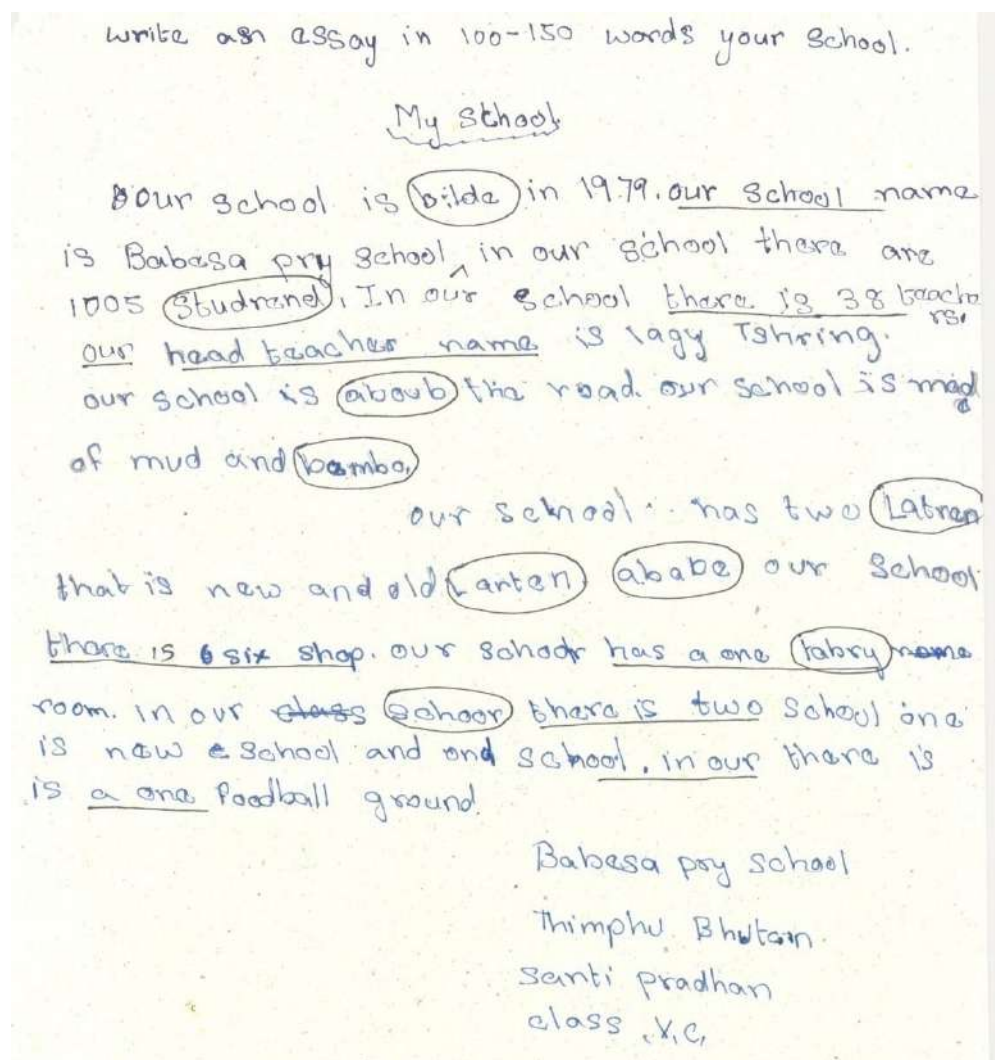 write an essay in 100-150 words your school.
My School
Our school is bilde in 1979. our school name
is Babesa pry school, in our school there are
1005 Studrend, In our school there is 38 teache
rs.
our head teacher name is lagy Tshring.
our school is aboub the road. our school is mad
e
of mud and bambo,
our school has two Latren
that is new and old Larten ababe our School
there is 6 six shop. our school has a one labry name
room. in our class School there is two School one
is new school and ond school. in our there is
is a one Foodball ground.
Babesa pry school
Thimphu Bhutan.
Santi pradhan
class V.C,